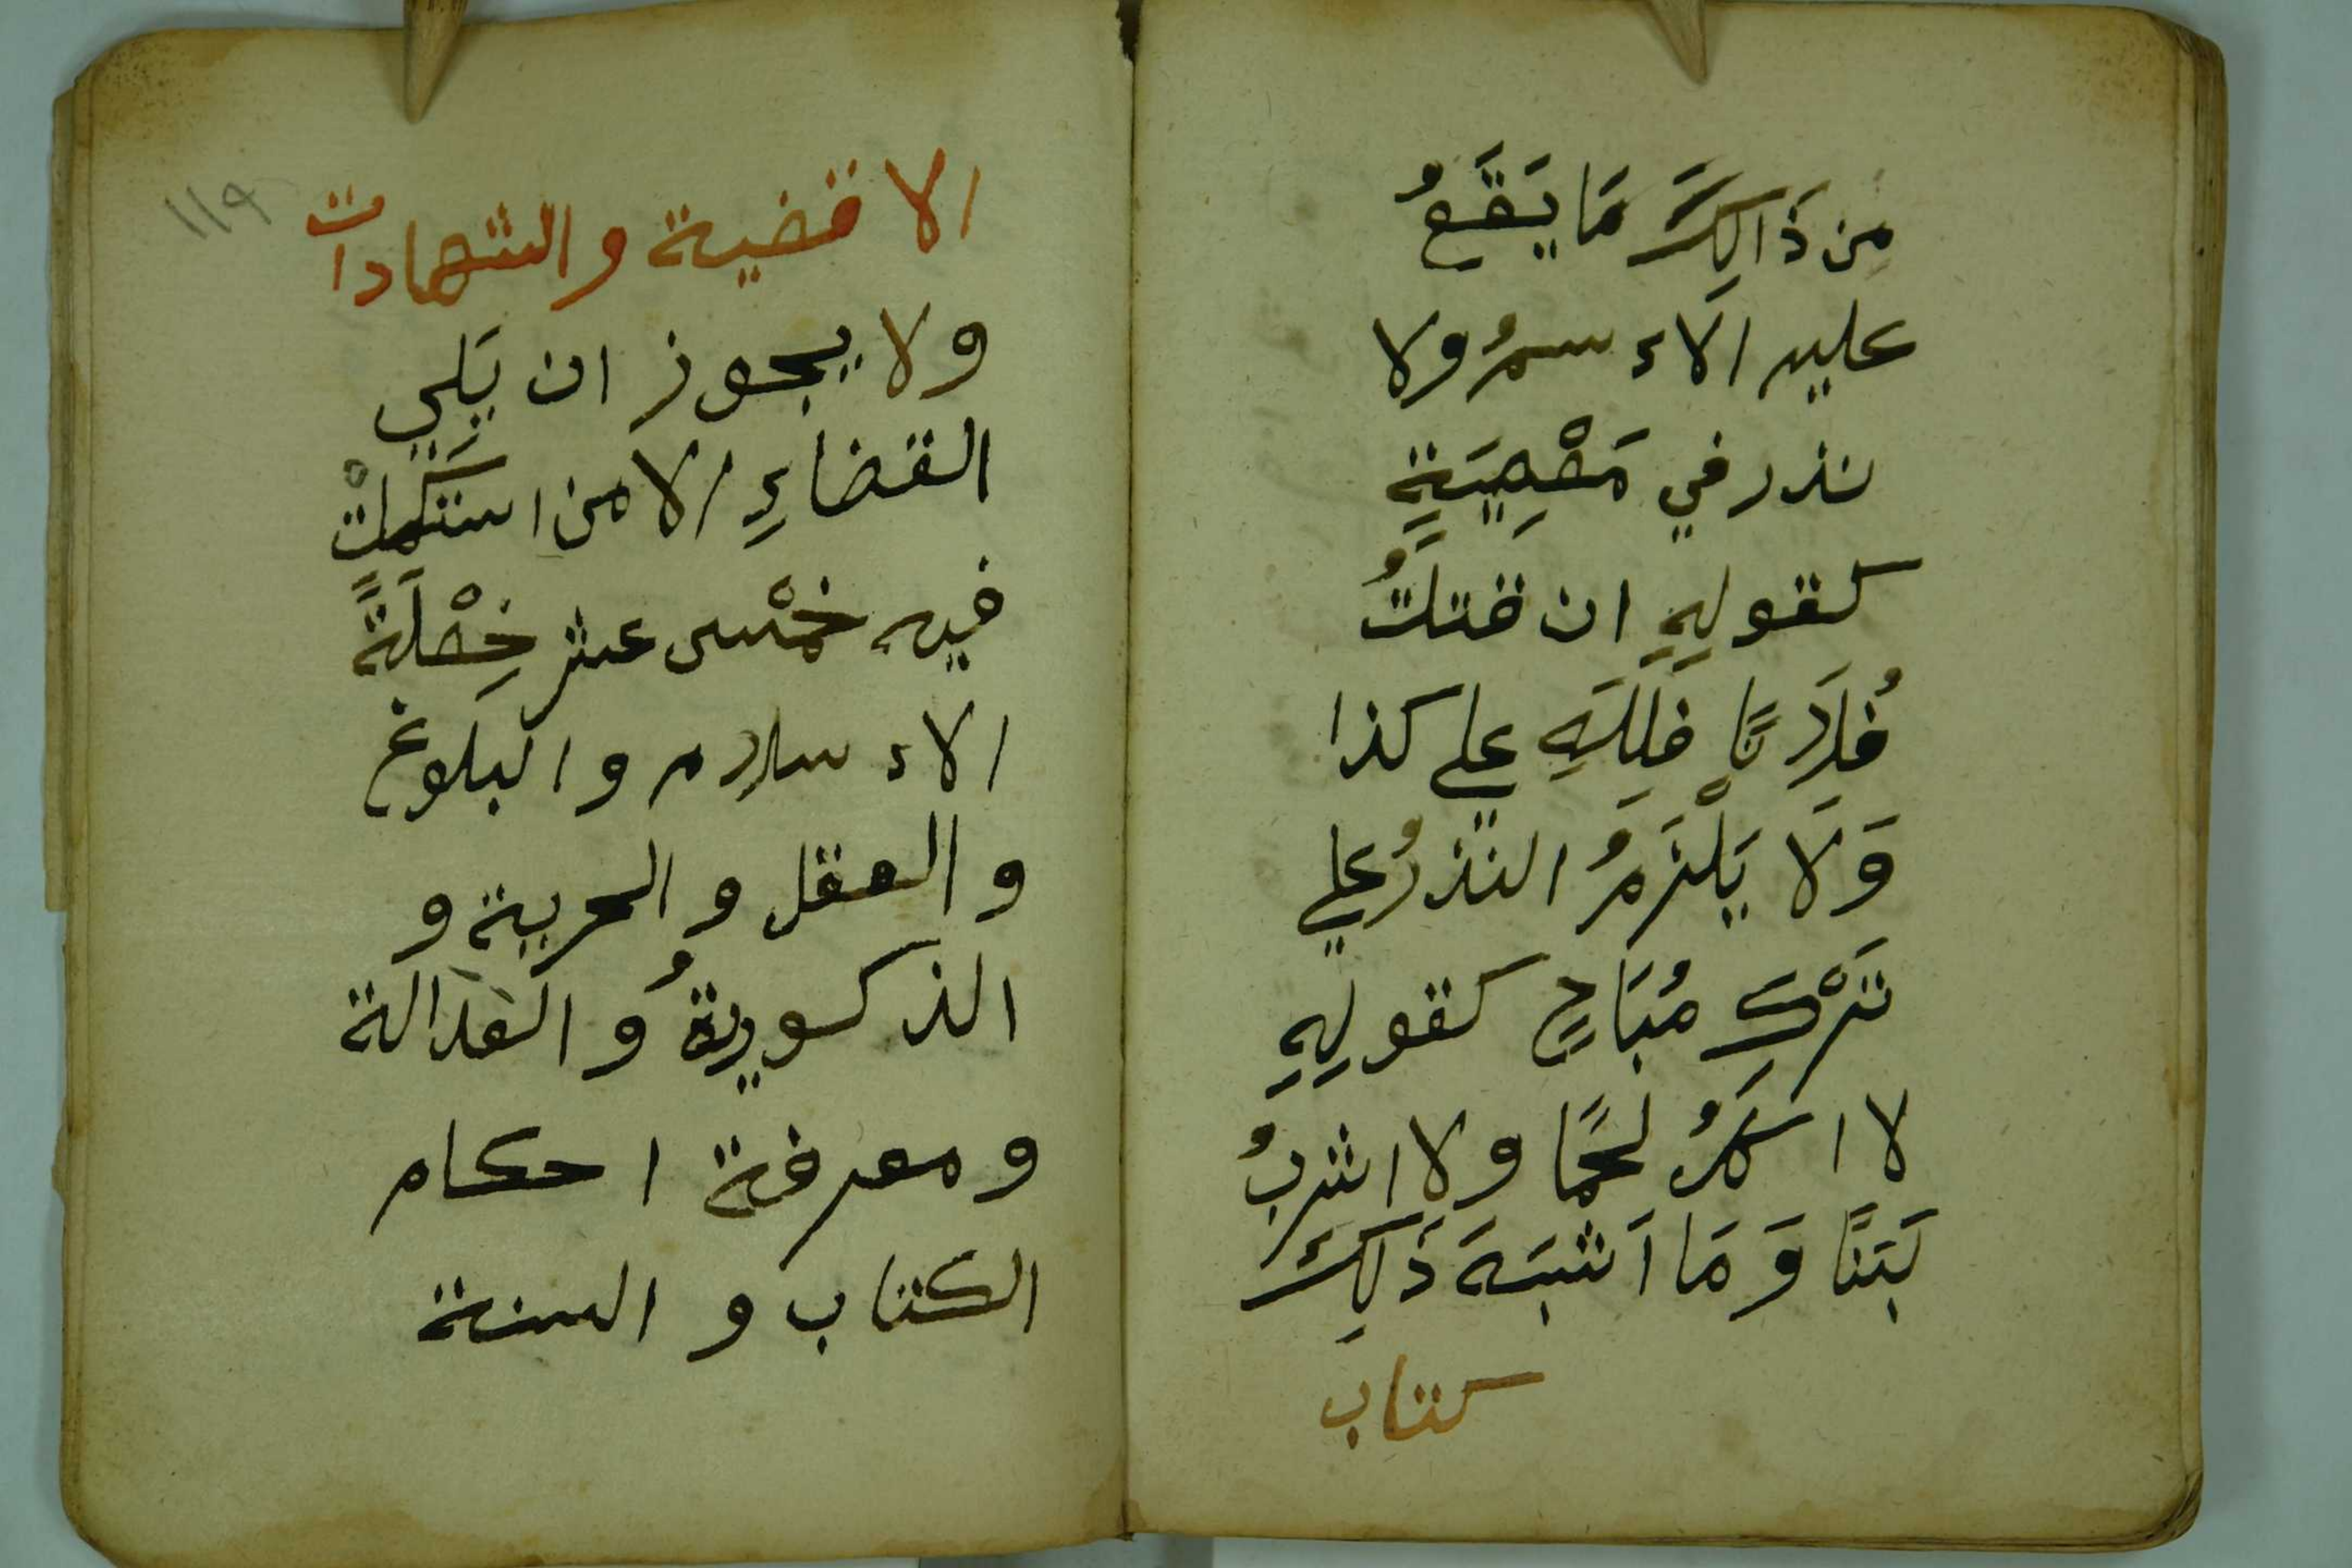 مِن ذَالِكَ مَا يَقَعُ
عليه الاءسمُ ولا
نذر في مَعْصِيَةٍ
كقولِهِ ان قتلتُ
فُلَانًا فَلِلَّهِ علي كذا
وَلَا يَلْزَمُ النذرُ علي
تَرْكِ مُبَاحٍ كقولِهِ
لا اكلُ لحمًا ولا اشربُ
لَبَنًا وَمَا اَشبَهَ ذَلِكَ
كتاب
١١٩
الاقضية والشهادات
ولا يجوز ان يَلِي
القضاءِ الا من استَكملتْ
فيه خمْس عشر خِصْلَةً
الاء سلام والبلوغ
والعقل والحرية و
الذكوريةُ والعَدالة
ومعرفة احكام
الكتاب والسنة